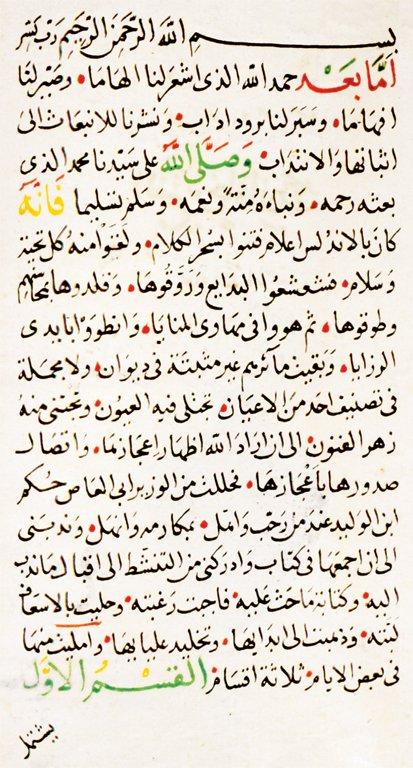 بسم الله الرحمن الرحيم رب يسر
أما بعد حمد الله الذي اشعر لنا الهاما، وصير لنا
افهاما، وسير لنا برود اداب، ونشرنا للانبعاث الى
اثباتها والانتداب، وصلى الله على سيدنا محمد الذي
بعثه رحمه، ونباءه منة ونعمه، وسلم تسليما فانه
كان بالاندلس اعلام فتنوا بسحر الكلام، ولقوا منه كل تحية
وسلام، فشعشعوا البدايع وروقوها، وقلدوها بمحاسنهم
وطوقوها، ثم هووا في مهاوي المنايا، وانطووا بايدي
الرزايا، وبقيت مآثرهم غير مثبتة في ديوان، ولا مجملة
في تصنيف احد من الاعيان، تجتلي فيه العيون، وتجتني منه
زهر الفنون، الى ان اراد الله اظهار اعجازها، واتصال
صدورها باعجازها، فحللت من الوزير ابي العاص حكم
ابن الوليد عند من رحب واهل، بمكارمه وانهل، وندبني
الى ان اجمعها في كتاب وادركني من التنشط الى اقبال ما ندب
اليه، وكتابة ما حث عليه، فاجبت رغبته، وحليت بالاسعاف
لبته، وذهبت الى ابدايها، وتخليد عليايها، وامليت منها
في بعض الايام، ثلاثة اقسام، القسم الاول
يشتمل